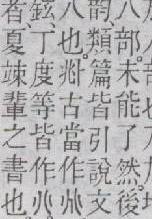 八部未能了然後
韻類篇皆引說文
八也兆古當作
鉉丁度等皆作
者夏竦輩之書也